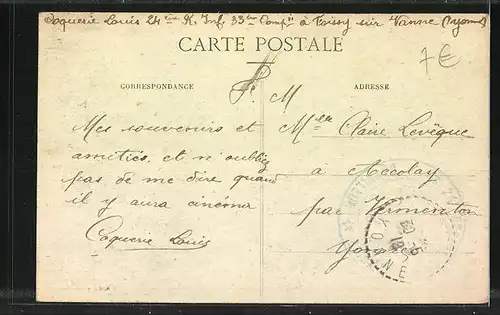 Coquerie Louis 24ème R. Inf. 33ème Comp ie à Foissy sur Vanne (Yonne)
CARTE POSTALE
7€
F. M
CORRESPONDANCE
ADRESSE
Mes souvenirs et
amitiés, et n'oubliez
pas de me dire quand
il y aura cinéma
Coquerie Louis
Melle Claire Levêque
à Accolay
par Vermenton
Yonne
YONNE